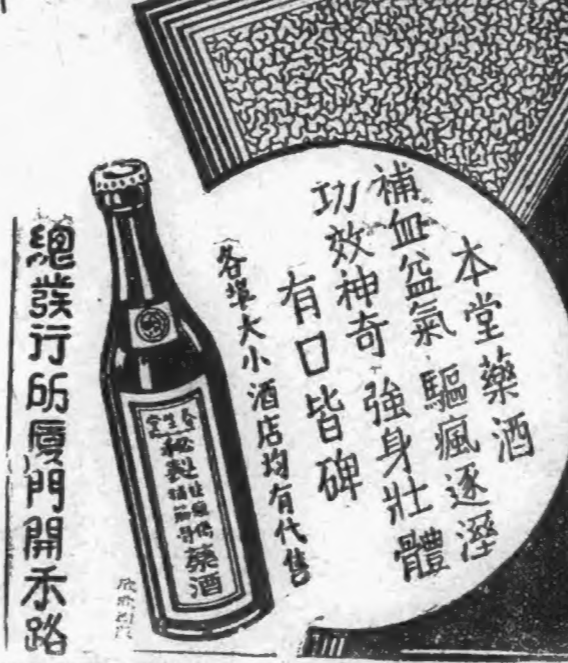 本堂藥酒
補血益氣 驅瘋逐溼
功效神奇 強身壯體
有口皆碑
各埠大小酒店均有代售
藥酒
總發行所廈門開禾路